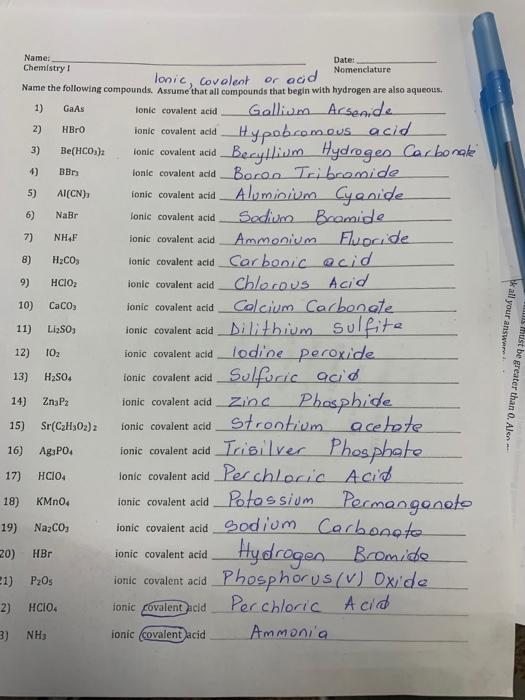 Name: Date:
Chemistry I Nomenclature
Ionic, covalent or acid
Name the following compounds. Assume that all compounds that begin with hydrogen are also aqueous.
1) GaAs ionic covalent acid Gallium Arsenide
2) HBrO ionic covalent acid Hypobromous acid
3) Be(HCO₃)₂ ionic covalent acid Beryllium Hydrogen Carbonate
4) BBr₃ ionic covalent acid Boron Tribromide
5) Al(CN)₃ ionic covalent acid Aluminium Cyanide
6) NaBr ionic covalent acid Sodium Bromide
7) NH₄F ionic covalent acid Ammonium Fluoride
8) H₂CO₃ ionic covalent acid Carbonic acid
9) HClO₂ ionic covalent acid Chlorous Acid
10) CaCO₃ ionic covalent acid Calcium Carbonate
11) Li₂SO₃ ionic covalent acid Dilithium Sulfite
12) IO₂ ionic covalent acid Iodine peroxide
13) H₂SO₄ ionic covalent acid Sulfuric acid
14) Zn₃P₂ ionic covalent acid Zinc Phosphide
15) Sr(C₂H₃O₂)₂ ionic covalent acid Strontium acetate
16) Ag₃PO₄ ionic covalent acid Trisilver Phosphate
17) HClO₄ ionic covalent acid Perchloric Acid
18) KMnO₄ ionic covalent acid Potassium Permanganate
19) Na₂CO₃ ionic covalent acid Sodium Carbonate
20) HBr ionic covalent acid Hydrogen Bromide
21) P₂O₅ ionic covalent acid Phosphorus(V) Oxide
2) HClO₄ ionic covalent acid Perchloric Acid
3) NH₃ ionic covalent acid Ammonia
must be greater than 0. Also
all your answers